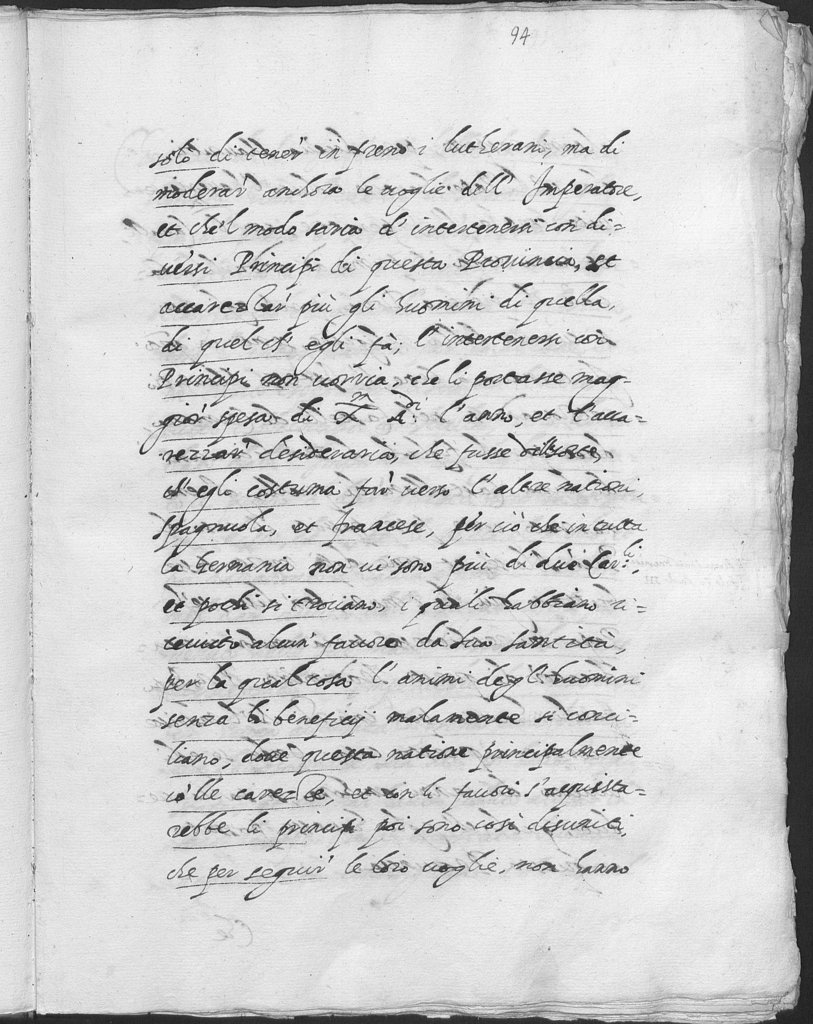 94
solo di tener in freno i lutherani, ma di
moderar anchora le voglie dell' Imperatore,
et che'l modo saria d' intertenersi con di=
versi Principi di questa Provincia, et
accarezzar più gli huomini di quella,
di quel ch' egli fà; l' intertenersi con
Principi non vorria, che li portasse mag-
gior spesa di l'anno, et l'acca=
rezzar desideraria, che fusse dell'sorte,
ch' egli costuma far verso l'altre nationi,
spagnuola, et francese, per ciò che in tutta
la Germania non vi sono più di dùi Car.li,
et pochi si trovano, i quali habbiano ri=
cevuto alcun' favore da sua santità,
per la qual cosa l' animi degl' huomini
senza li beneficij malamente si conci=
liano, dove questa natione principalmente
cò lle carezze, et con li favori s'acquista=
rebbe li principi poi sono così disuniti,
che per seguir' le loro voglie, non hanno